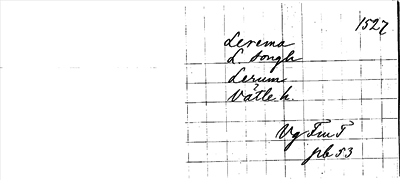 1527
Lerema
L. Songh
Lerum
Vättle h.
Vg FmT
pb 53